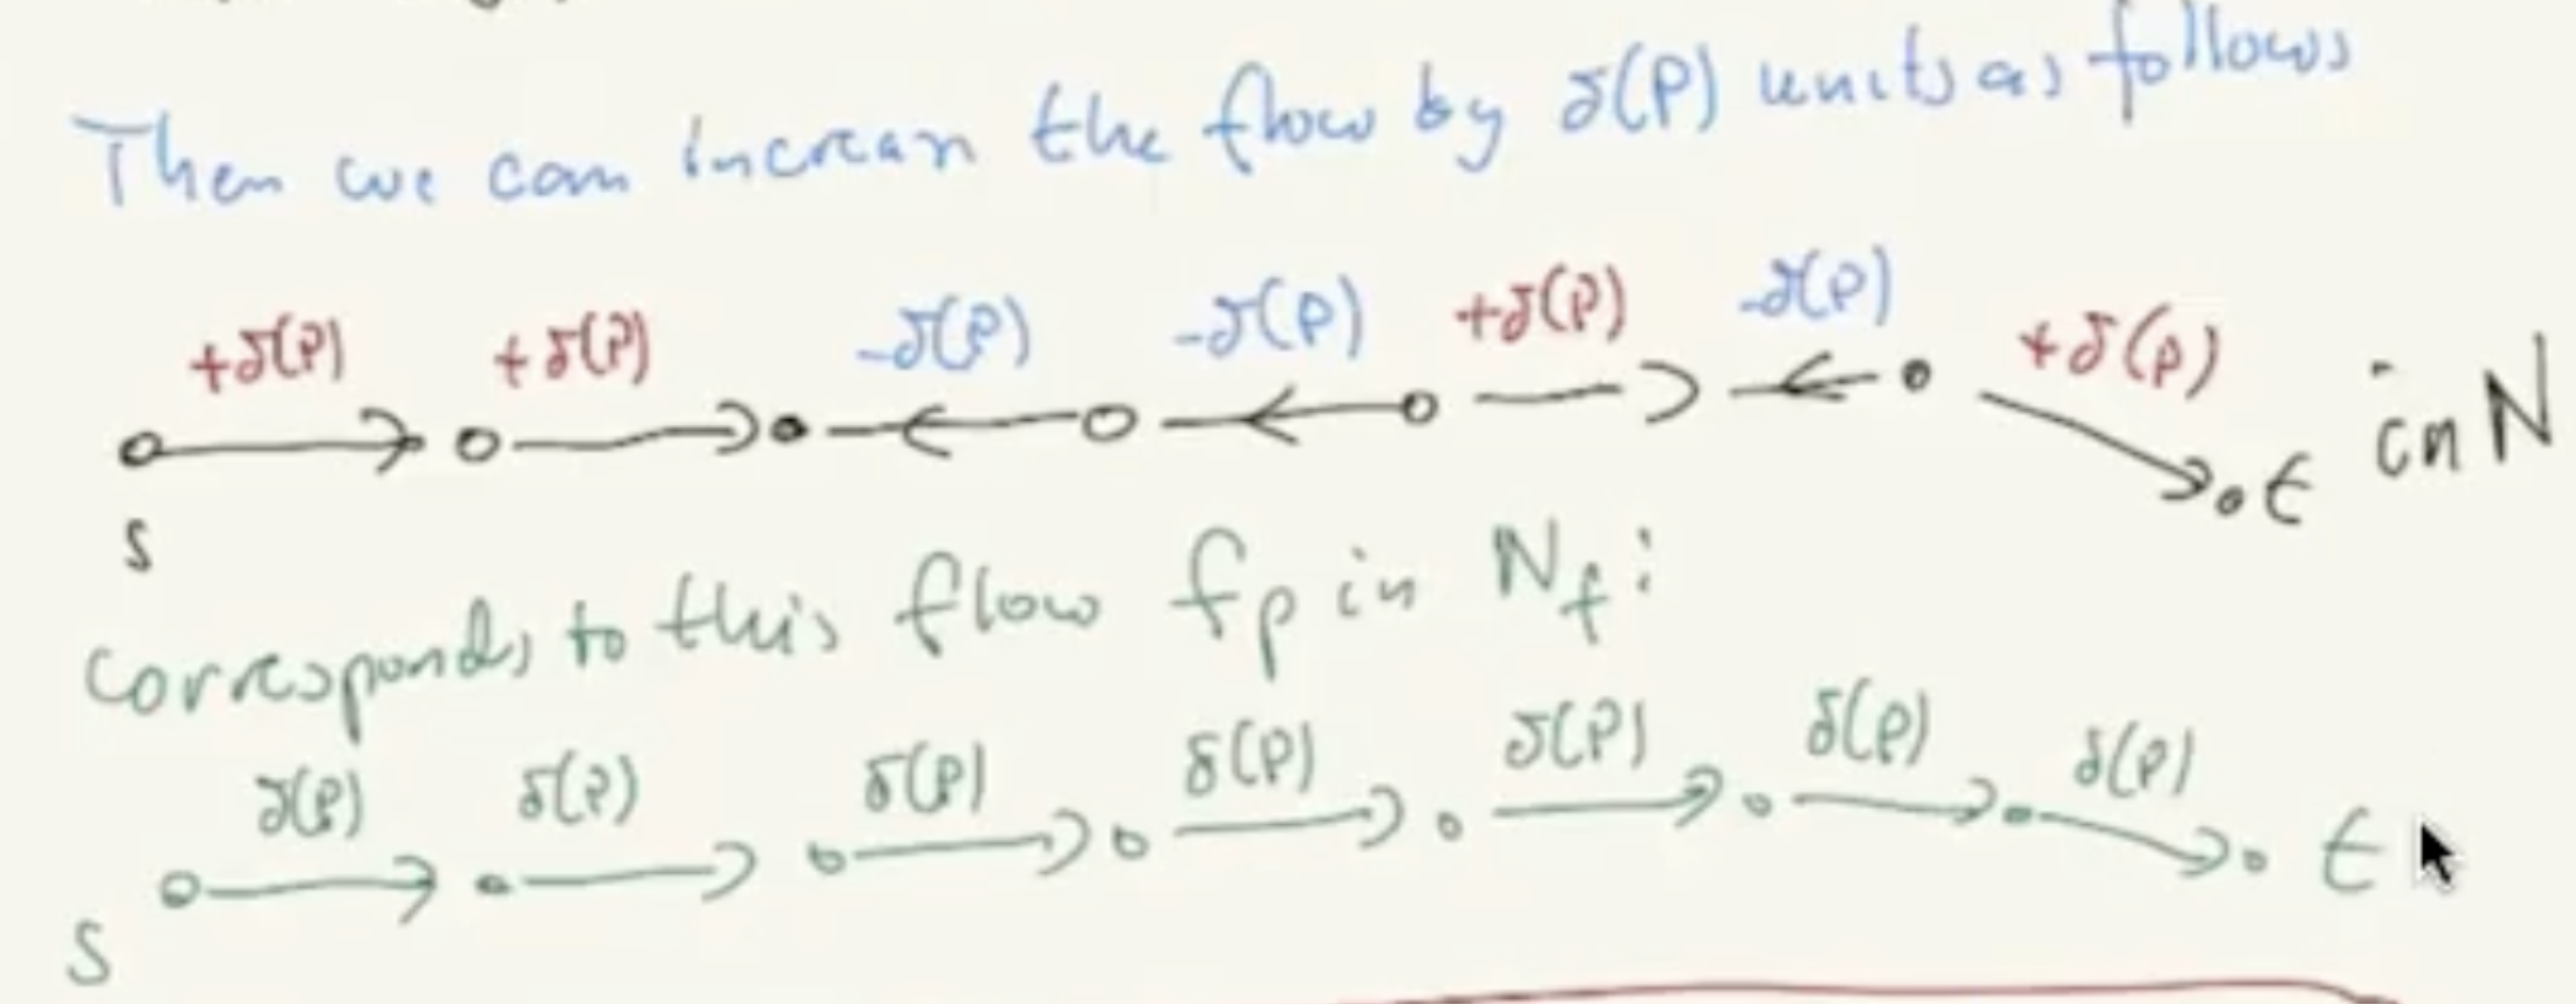 Then we can increase the flow by δ(P) units as follows
+δ(P) +δ(P) -δ(P) -δ(P) +δ(P) -δ(P) +δ(P)
s t in N
corresponds to this flow f_P in N_f:
δ(P) δ(P) δ(P) δ(P) δ(P) δ(P) δ(P)
s t